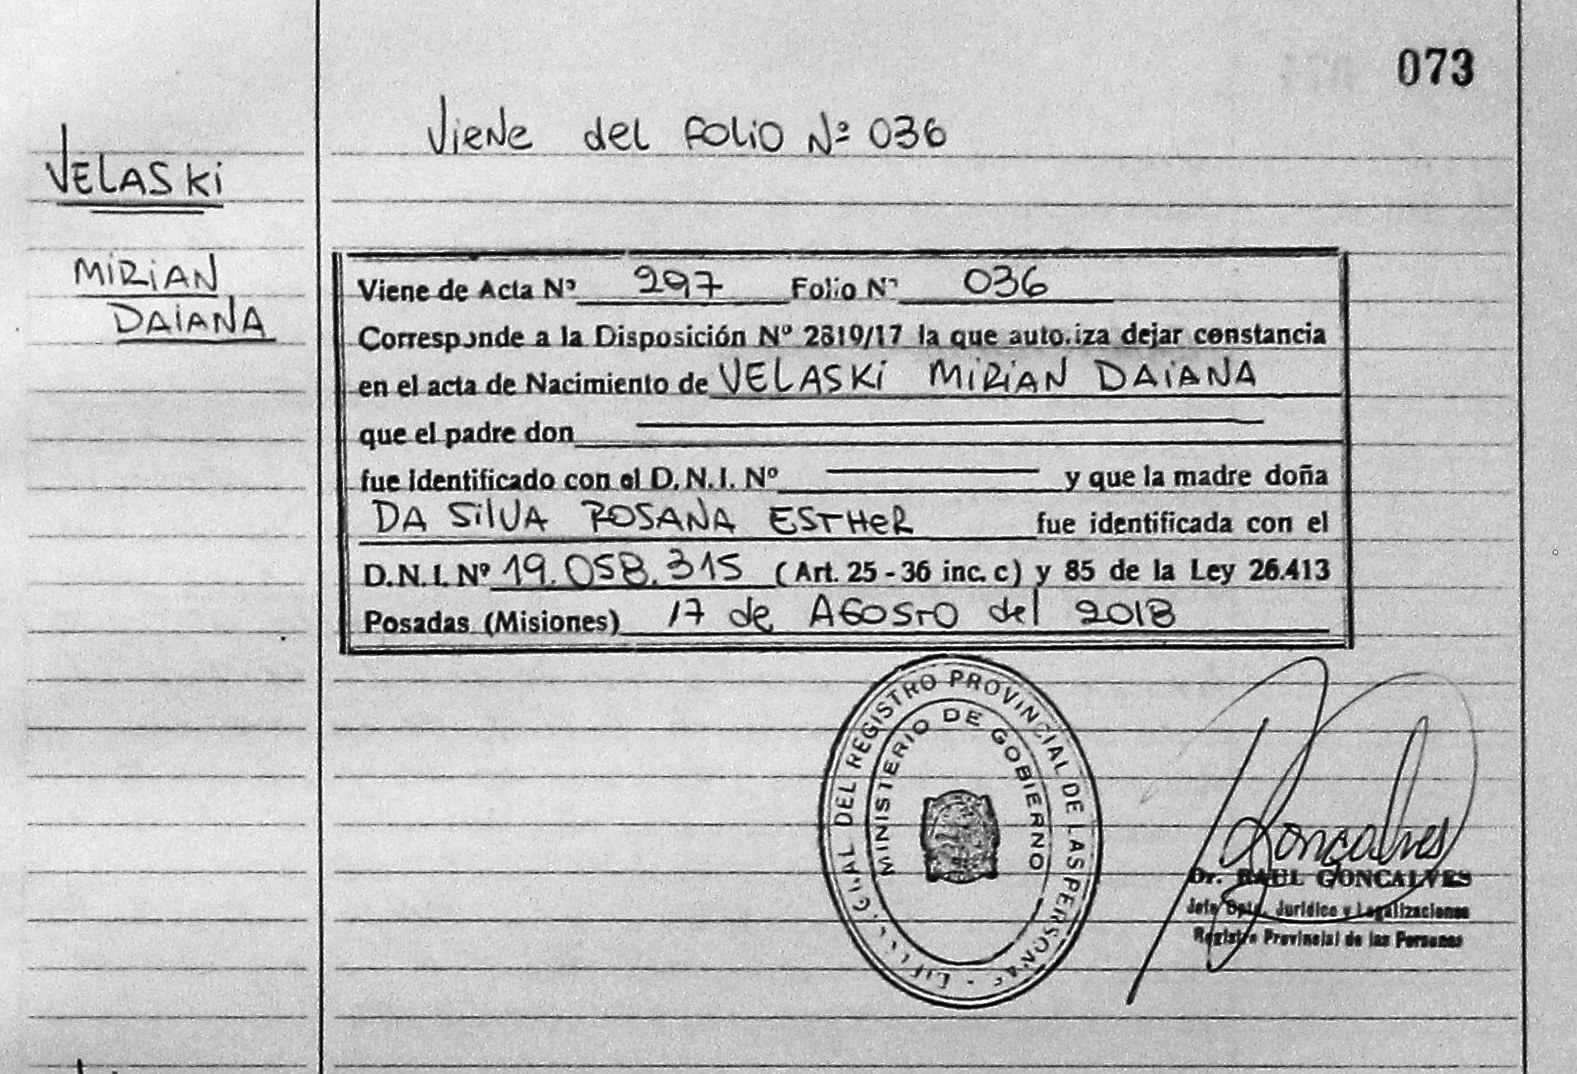 073
Viene del Folio Nº 036
VELASKI
MIRIAN
DAIANA
Viene de Acta Nº 297 Folio Nº 036
Corresponde a la Disposición Nº 2819/17 la que autoriza dejar constancia
en el acta de Nacimiento de VELASKI MIRIAN DAIANA
que el padre don
fue identificado con el D.N.I. Nº y que la madre doña
DA SILVA ROSANA ESTHER fue identificada con el
D.N.I. Nº 19.058.315 (Art. 25 - 36 inc. c) y 85 de la Ley 26.413
Posadas (Misiones) 17 de AGOSTO del 2018
DEL REGISTRO PROVINCIAL DE LAS PERSONAS
MINISTERIO DE GOBIERNO
Gonçalves
Dr. RAUL GONCALVES
Jefe Dpto. Jurídico y Legalizaciones
Registro Provincial de las Personas